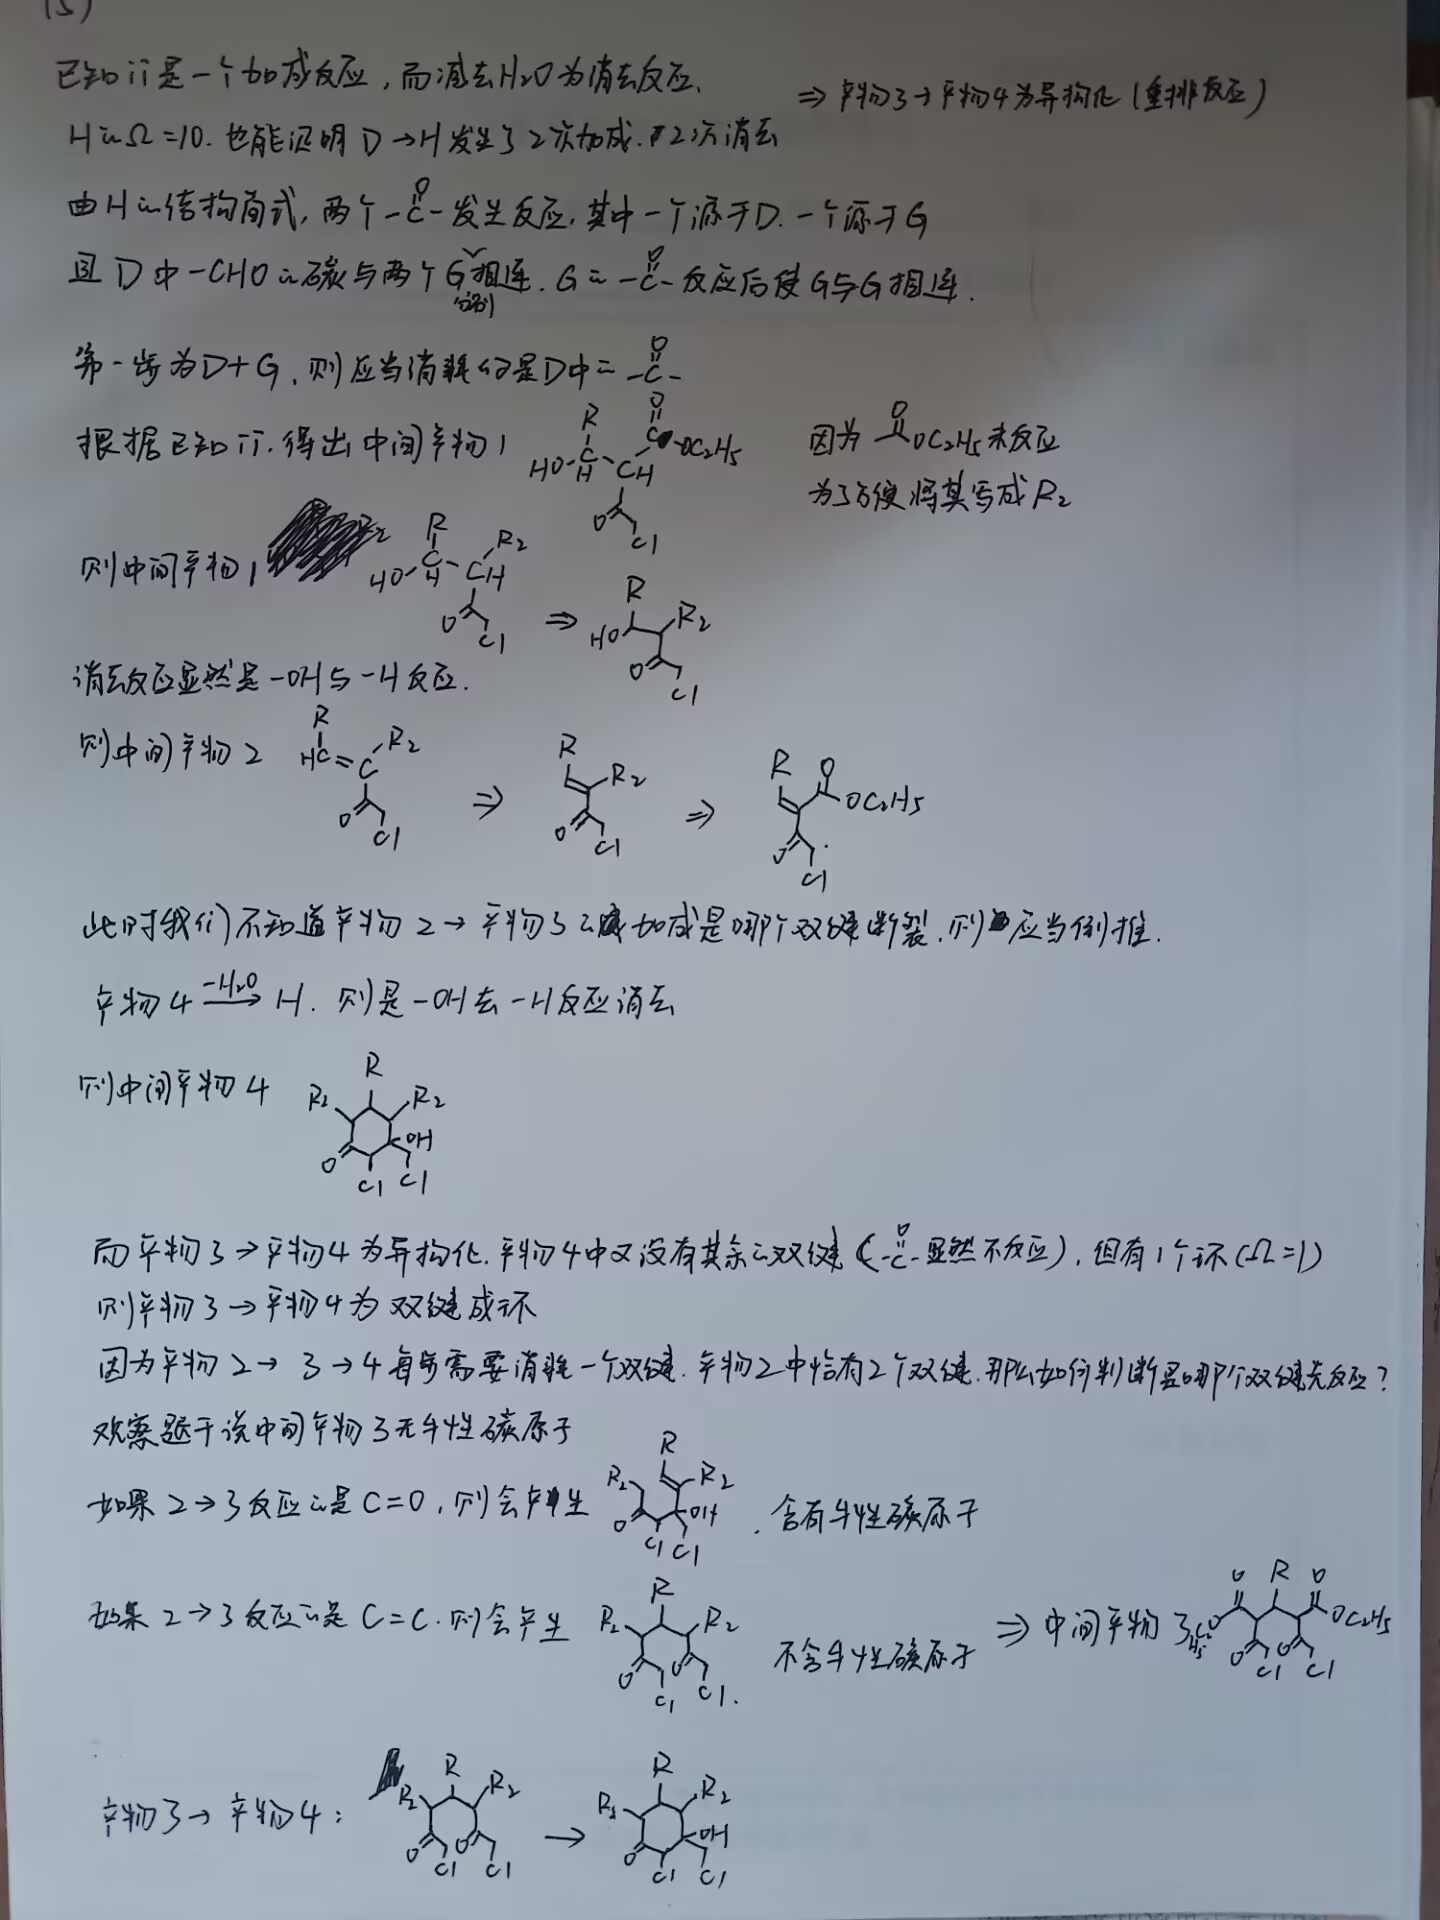 (5)
已知ii是一个加成反应,而减去H2O为消去反应.
⇒ 产物3→产物4为异构化(重排反应)
H的Ω=10. 也能证明D→H发生了2次加成.2次消去
由H的结构简式,两个-C-发生反应,其中一个源于D.一个源于G
O
且D中-CHO的碳与两个G相连. G的-C-反应后使G与G相连.
分别
O
第一步为D+G,则应当消耗的是D中的-C-
O
根据已知ii.得出中间产物1
R HO-C-H CH C O OC2H5 O Cl
因为 O OC2H5未反应
为了方便将其写成R2
则中间产物1
R HO-C-H CH R2 O Cl ⇒ R HO R2 O Cl
消去反应显然是-OH与-H反应.
则中间产物2
R HC=C R2 O Cl ⇒ R R2 O Cl ⇒ R O OC2H5 O Cl
此时我们不知道产物2→产物3的加成是哪个双键断裂.则应当倒推.
产物4 -H2O→ H. 则是-OH去-H反应消去
则中间产物4
R R2 R2 OH O Cl Cl
而产物3→产物4为异构化.产物4中又没有其余的双键(-C-显然不反应),但有1个环(Ω=1)
O
则产物3→产物4为双键成环
因为产物2→3→4每步需要消耗一个双键.产物2中恰有2个双键.那么如何判断是哪个双键先反应?
观察题干说中间产物3无手性碳原子
如果2→3反应的是C=O,则会产生 R R2 R2 OH O Cl Cl .含有手性碳原子
如果2→3反应的是C=C.则会产生 R R2 R2 O O Cl Cl. 不含手性碳原子 ⇒ 中间产物3 O R O OC2H5 O O Cl Cl
产物3→产物4: R R2 R2 O O Cl Cl → R R2 R2 OH O Cl Cl